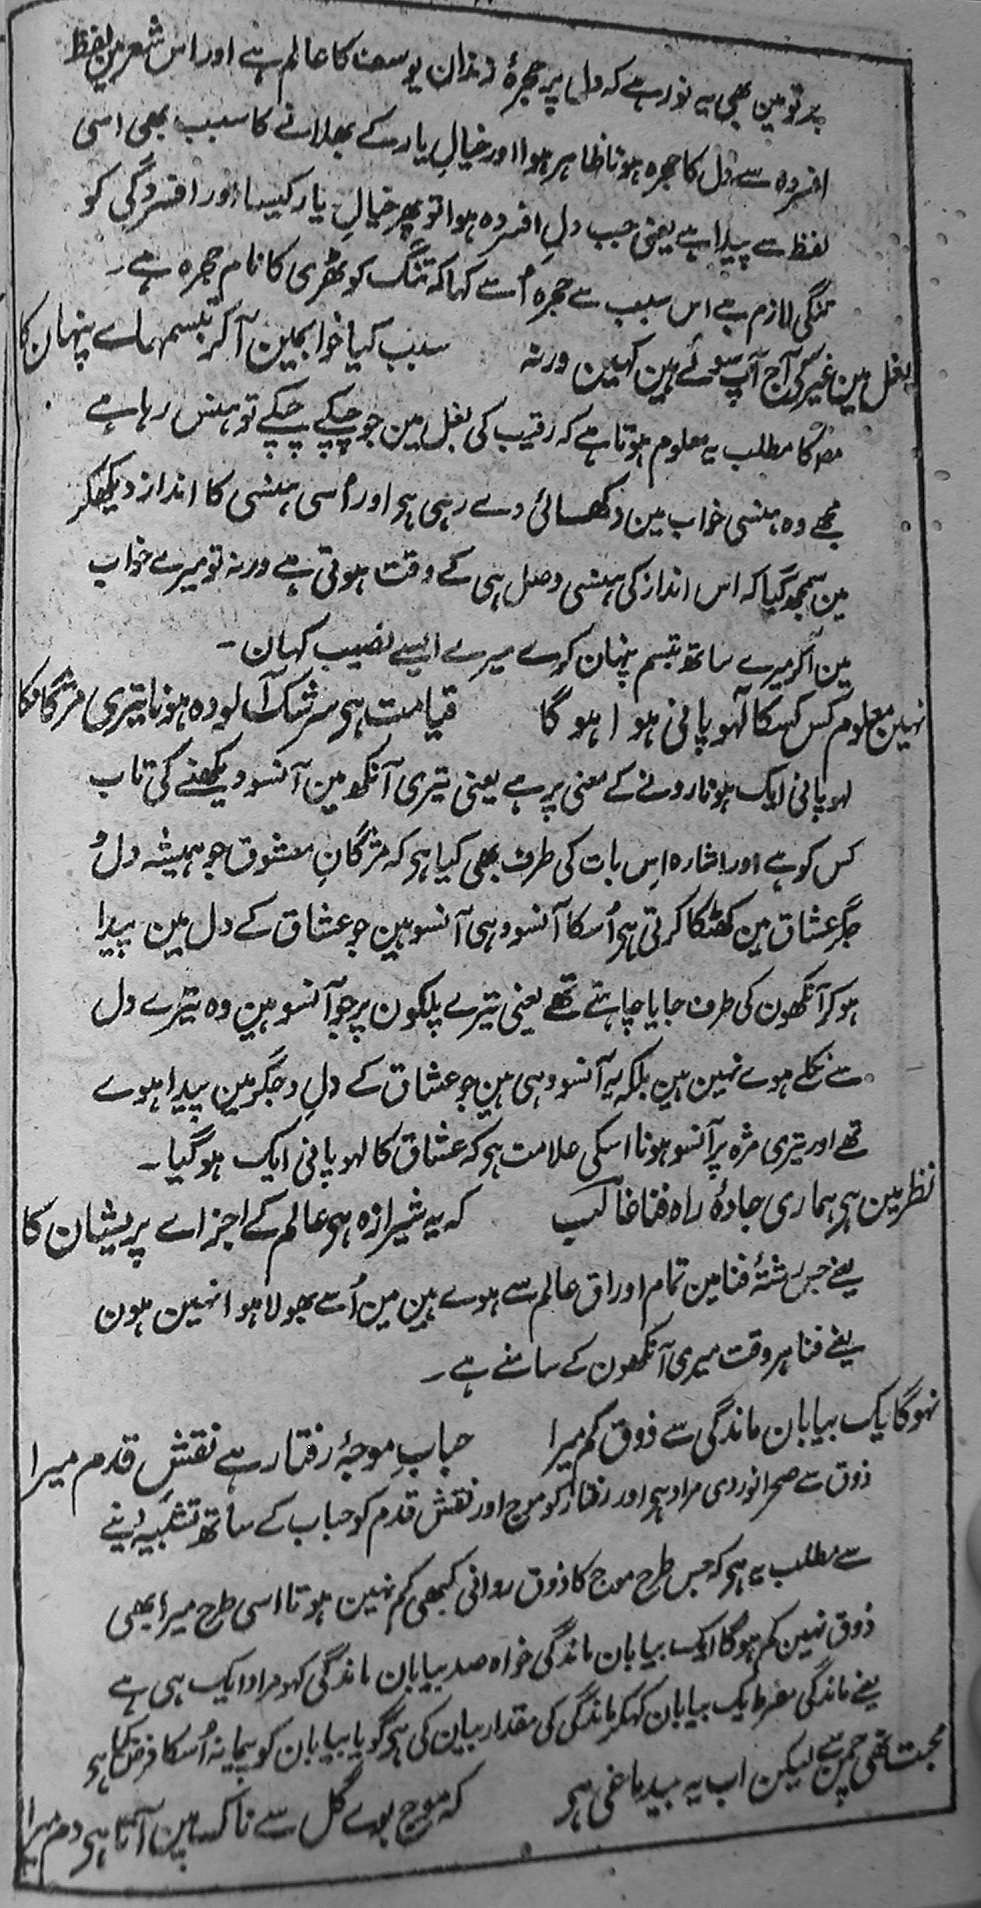 پرتو مین بھی یہ نور ہے کہ دل پر حجرۂ زندان یوسف کا عالم ہے اور اس شعر مین لفظ
افسردہ سے دل کا حجرہ ہونا ظاہر ہوا اور خیالِ یار کے بھلانے کا سبب بھی اسی
لفظ سے پیدا ہے یعنی جب دل افسردہ ہوا تو پھر خیالِ یار کیسا اور افسردگی کو
تنگی لازم ہے اس سبب سے حجرہ اُسے کہا کہ تنگ کوٹھری کا نام حجرہ ہے۔
بغل مین غیر کی آج آپ سوئے ہین کہین ورنہ سبب کیا خوابمین آکر تبسمہاے پنہان کا
کا مطلب یہ معلوم ہوتا ہے کہ رقیب کی بغل مین جو چپکے چپکے تو ہنس رہا ہے
مجھے وہ ہنسی خواب مین دکھائی دے رہی ہی اور اُسی ہنسی کا انداز دیکھکر
مین سمجھ گیا کہ اس انداز کی ہنسی وصل ہی کے وقت ہوتی ہے ورنہ تو میرے خواب
مین آکر میرے ساتھ تبسم پنہان کرے میرے ایسے نصیب کہان۔
نہین معلوم کس کسکا لہو پانی ہوا ہوگا قیامت ہی سرشک آلودہ ہونا تیری مژگانکا
لہو پانی ایک ہونا رونے کے معنی پر ہے یعنی تیری آنکھ مین آنسو دیکھنے کی تاب
کس کو ہے اور اشارہ اِس بات کی طرف بھی کیا ہی کہ مژگان معشوق جو ہمیشہ دل و
جگر عشاق مین کھٹکا کرتی ہی اُسکا آنسو وہی آنسو ہین جو عشاق کے دل مین پیدا
ہوکر آنکھون کی طرف جایا چاہتے تھے یعنی تیرے پلکون پر جو آنسو ہین وہ تیرے دل
سے نکلے ہوے نہین ہین بلکہ یہ آنسو وہی ہین جو عشاق کے دل و جگر مین پیدا ہوے
تھے اور تیری مژہ پر آنسو ہونا اسکی علامت ہی کہ عشاق کا لہو پانی ایک ہوگیا۔
نظر مین ہی ہماری جادۂ راہ فنا غالب کہ یہ شیرازہ ہی عالم کے اجزاے پریشان کا
یعنے جس رشتۂ فنا مین تمام اوراق عالم سے ہوے ہین مین اُسے بھولا ہوا نہین ہون
یعنے فنا ہر وقت میری آنکھون کے سامنے ہے۔
نہوگا یک بیابان ماندگی سے ذوق کم میرا حبابِ موجۂ رفتار ہے نقشِ قدم میرا
ذوق سے صحرا نوردی مراد ہی اور رفتار کو موج اور نقش قدم کو حباب کے ساتھ تشبیہ دینے
سے مطلب یہ ہی کہ جس طرح موج کا ذوق روانی کبھی کم نہین ہوتا اسی طرح میرا بھی
ذوق نہین کم ہوگا ایک بیابان ماندگی خواہ صد بیابان ماندگی کہو مراد ایک ہی ہے
یعنے ماندگی مفرط یک بیابان کہکر ماندگی کی مقدار بیان کی ہی گویا بیابان کو پیمانہ اُسکا فرض کیا ہی
محبت تھی چمن سے لیکن اب یہ بیدماغی ہی کہ موج بوے گل سے ناک مین آتا ہی دم میرا